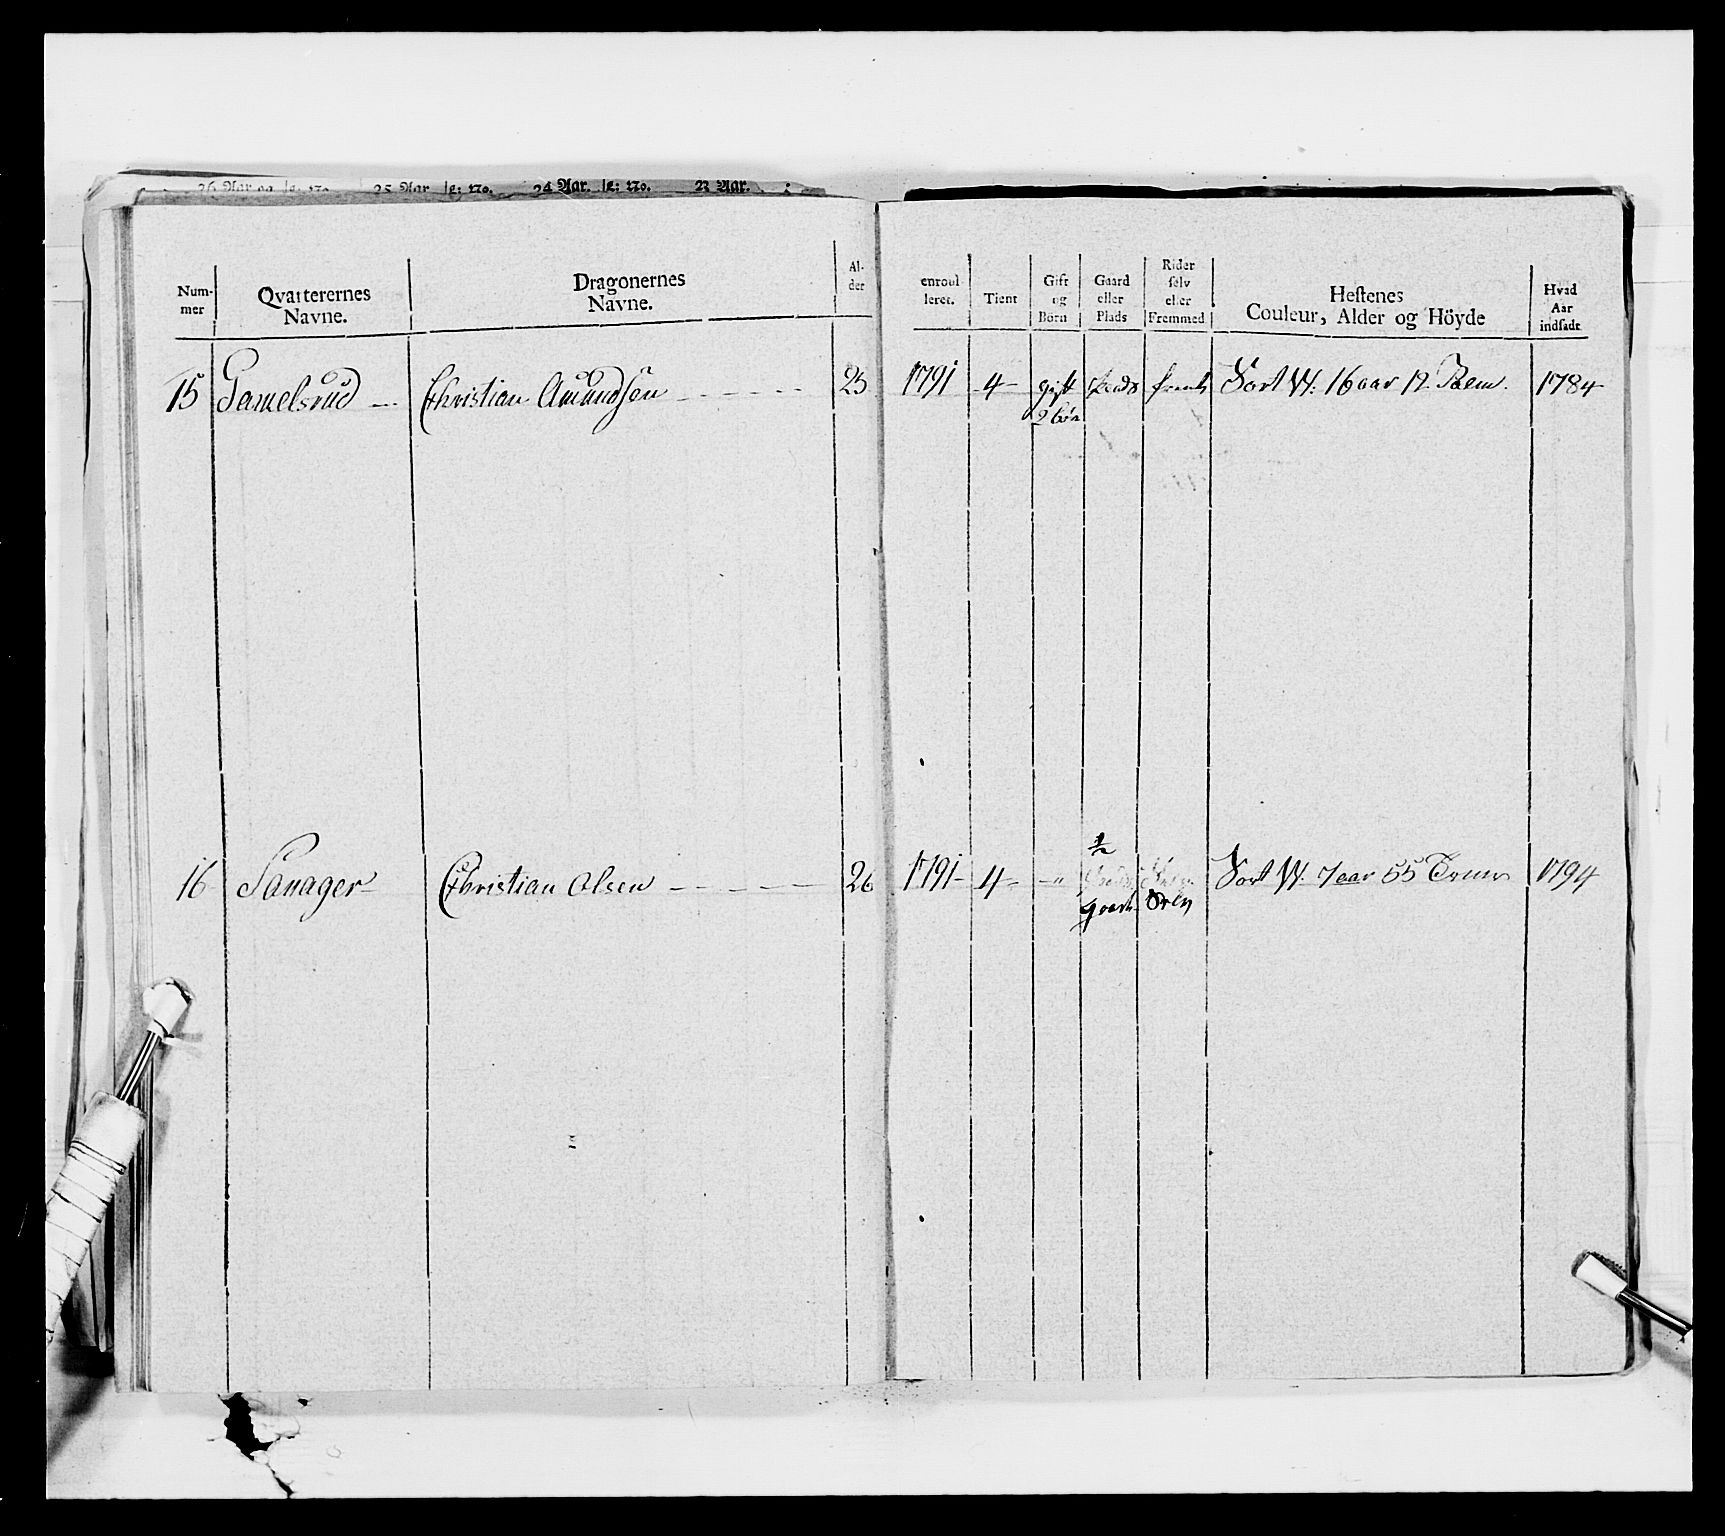 26 Aar og | L: No. 25 Aar | L: No. 24 Aar. | L: No. 23 Aar.
Num-
mer
Qvarterernes
Navne.
Dragonernes
Navne.
Al-
der
enroul-
leret.
Tient
Gift
og
Börn
Gaard
eller
Plads
Rider
selv
eller
Fremmed
Hestenes
Couleur, Alder og Höyde
Hvad
Aar
indsadt
15 Gamelsrud Christian Amundsen 25 1791 4 gift Plads fremd Sort W. 16 aar 12 1784
2 börn
½
16 Sanager Christian Olsen 26 1791 4 " Sort W. 7 aar 55 1794
gaard